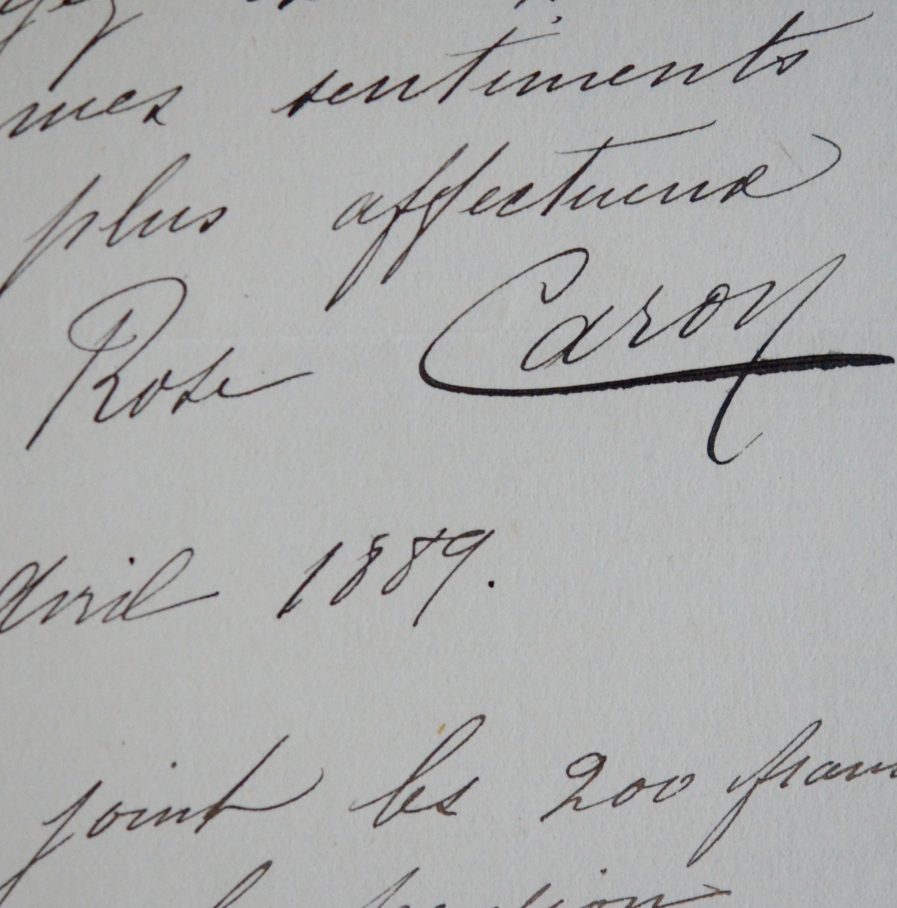 mes sentiments
plus affectueux
Rose Caron
avril 1889.
joint les 200 fran